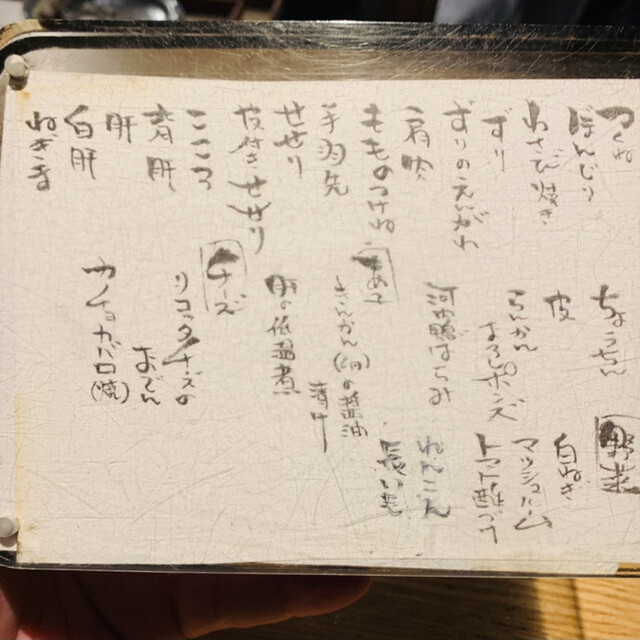 つくね
ぼんじり
わさび焼き
ずり
ずりのえんがわ
肩肉
もものつけね
手羽先
せせり
皮付きせせり
こころ
背肝
肝
白肝
ねぎま
ちょうちん
皮
ちょうかん
まるポンズ
河内鴨はらみ
あて
きんかん(卵)の醤油漬け
肝の低温煮
チーズ
リコッタチーズの
おでん
カチョカバロ(焼)
野菜
白ねぎ
マッシュルーム
トマト酢づけ
れんこん
長いも